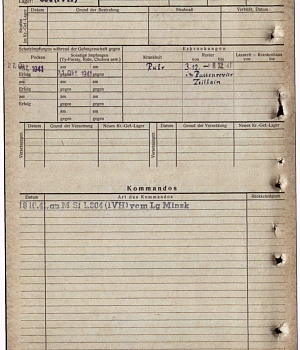 Lager: 304 (IVH)
Datum Grund der Bestrafung Strafmaß Verbüßt, Datum
Schutzimpfungen während der Gefangenschaft gegen Erkrankungen
Pocken Sonstige Impfungen (Ty-Paraty, Ruhr, Cholera usw.) Krankheit Revier Lazarett - Krankenhaus
von bis von bis
1941 1941 Ruhr 3.12. – 8.12.41
Erfolg gegen im Russenrevier
am am Zeithain
Erfolg gegen
am am
Erfolg gegen
am am
gegen
Datum Grund der Versetzung Neues Kr.-Gef.-Lager Datum Grund der Versetzung Neues Kr.-Gef.-Lager
Versetzungen
Versetzungen
Kommandos
Datum Art des Kommandos Rückkehrdatum
18.10.41 an M St L 304 (IVH) vom Lg Minsk